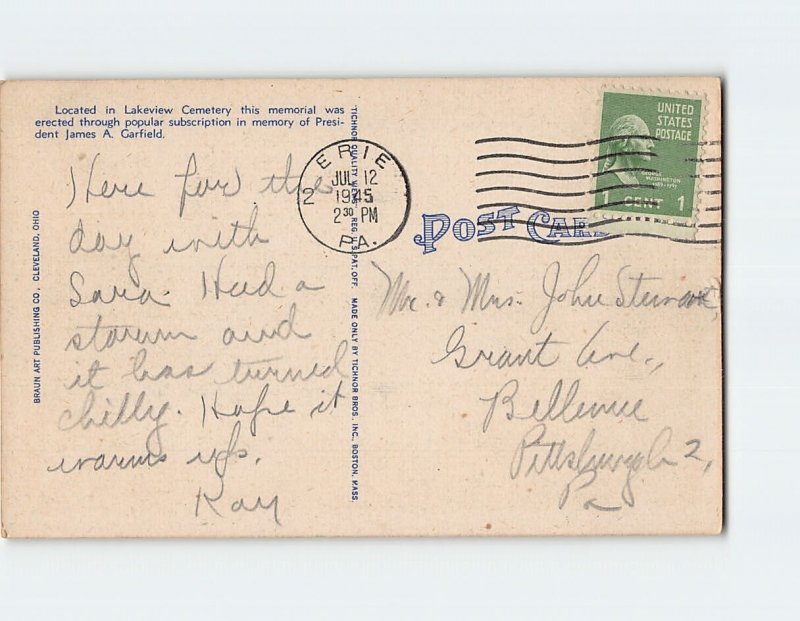 Located in Lakeview Cemetery this memorial was
erected through popular subscription in memory of Presi-
dent James A. Garfield.
Here for the
day with
Sara. Had a
storm and
it has turned
chilly. Hope it
warms up.
Kay
BRAUN ART PUBLISHING CO., CLEVELAND, OHIO
TICHNOR QUALITY VIEWS, REG. U.S. PAT. OFF. MADE ONLY BY TICHNOR BROS. INC., BOSTON, MASS.
ERIE
JUL 12
2 1945
2 30 PM
PA.
UNITED
STATES
POSTAGE
GEORGE
WASHINGTON
1789-1797
1 CENT 1
POST CARD
Mr. & Mrs. John Stewart
Grant Ave.,
Bellevue
Pittsburgh 2,
Pa